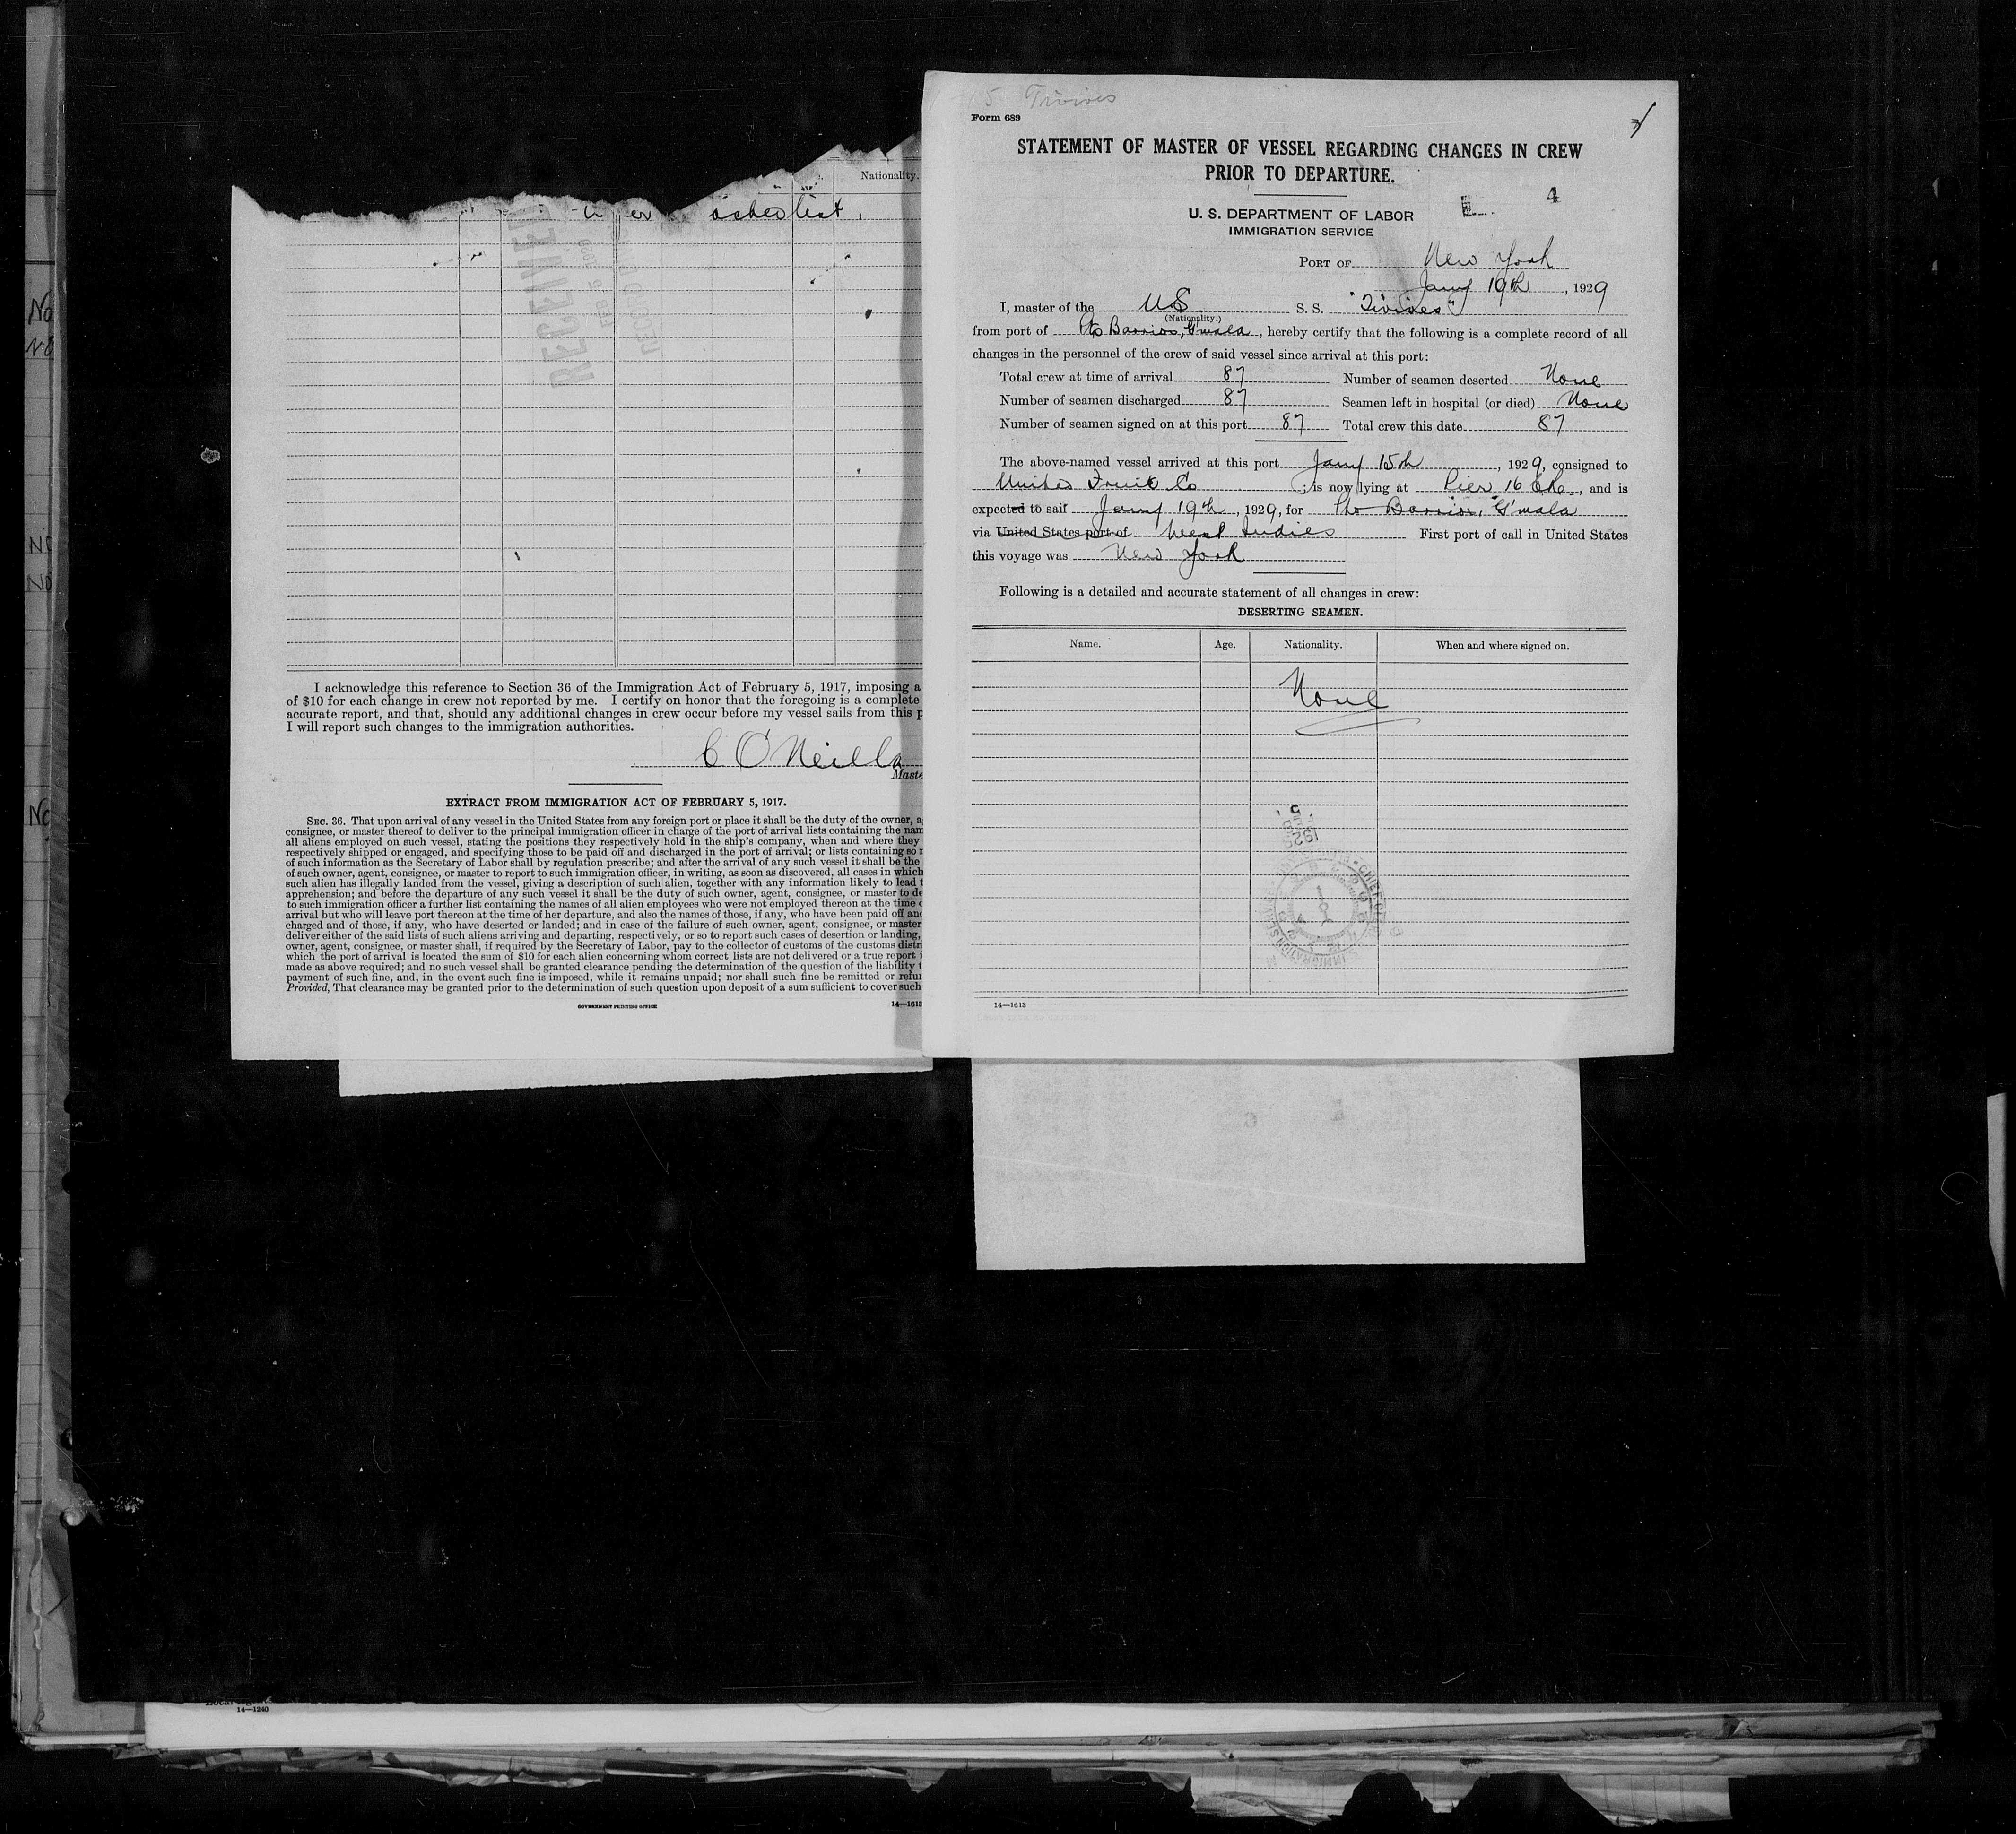 No
NO
NO
No
Nationality.
I acknowledge this reference to Section 36 of the Immigration Act of February 5, 1917, imposing a
of $10 for each change in crew not reported by me. I certify on honor that the foregoing is a complete
accurate report, and that, should any additional changes in crew occur before my vessel sails from this p
I will report such changes to the immigration authorities.
C O'Neill
Maste
EXTRACT FROM IMMIGRATION ACT OF FEBRUARY 5, 1917.
SEC. 36. That upon arrival of any vessel in the United States from any foreign port or place it shall be the duty of the owner, a
consignee, or master thereof to deliver to the principal immigration officer in charge of the port of arrival lists containing the nam
all aliens employed on such vessel, stating the positions they respectively hold in the ship's company, when and where they
respectively shipped or engaged, and specifying those to be paid off and discharged in the port of arrival; or lists containing so m
of such information as the Secretary of Labor shall by regulation prescribe; and after the arrival of any such vessel it shall be the
of such owner, agent, consignee, or master to report to such immigration officer, in writing, as soon as discovered, all cases in which
such alien has illegally landed from the vessel, giving a description of such alien, together with any information likely to lead t
apprehension; and before the departure of any such vessel it shall be the duty of such owner, agent, consignee, or master to de
to such immigration officer a further list containing the names of all alien employees who were not employed thereon at the time o
arrival but who will leave port thereon at the time of her departure, and also the names of those, if any, who have been paid off and
charged and of those, if any, who have deserted or landed; and in case of the failure of such owner, agent, consignee, or master
deliver either of the said lists of such aliens arriving and departing, respectively, or so to report such cases of desertion or landing,
owner, agent, consignee, or master shall, if required by the Secretary of Labor, pay to the collector of customs of the customs distri
which the port of arrival is located the sum of $10 for each alien concerning whom correct lists are not delivered or a true report i
made as above required; and no such vessel shall be granted clearance pending the determination of the question of the liability t
payment of such fine, and, in the event such fine is imposed, while it remains unpaid; nor shall such fine be remitted or refun
Provided, That clearance may be granted prior to the determination of such question upon deposit of a sum sufficient to cover such
GOVERNMENT PRINTING OFFICE 14—1613
RECEIVED
15 Tivives
Form 689
STATEMENT OF MASTER OF VESSEL REGARDING CHANGES IN CREW
PRIOR TO DEPARTURE.
4
U. S. DEPARTMENT OF LABOR
IMMIGRATION SERVICE
PORT OF New York
Jany 19th, 1929
I, master of the US S. S. "Tivives"
(Nationality.)
from port of Pto Barrios, G'mala, hereby certify that the following is a complete record of all
changes in the personnel of the crew of said vessel since arrival at this port:
Total crew at time of arrival 87 Number of seamen deserted None
Number of seamen discharged 87 Seamen left in hospital (or died) None
Number of seamen signed on at this port 87 Total crew this date 87
The above-named vessel arrived at this port Jany 15th, 1929, consigned to
United Fruit Co; is now lying at Pier 16 ER, and is
expected to sail Jany 19th, 1929, for Pto Barrios, G'mala
via United States port of West Indies First port of call in United States
this voyage was New York
Following is a detailed and accurate statement of all changes in crew:
DESERTING SEAMEN.
Name. Age. Nationality. When and where signed on.
None
14—1613
14—1240